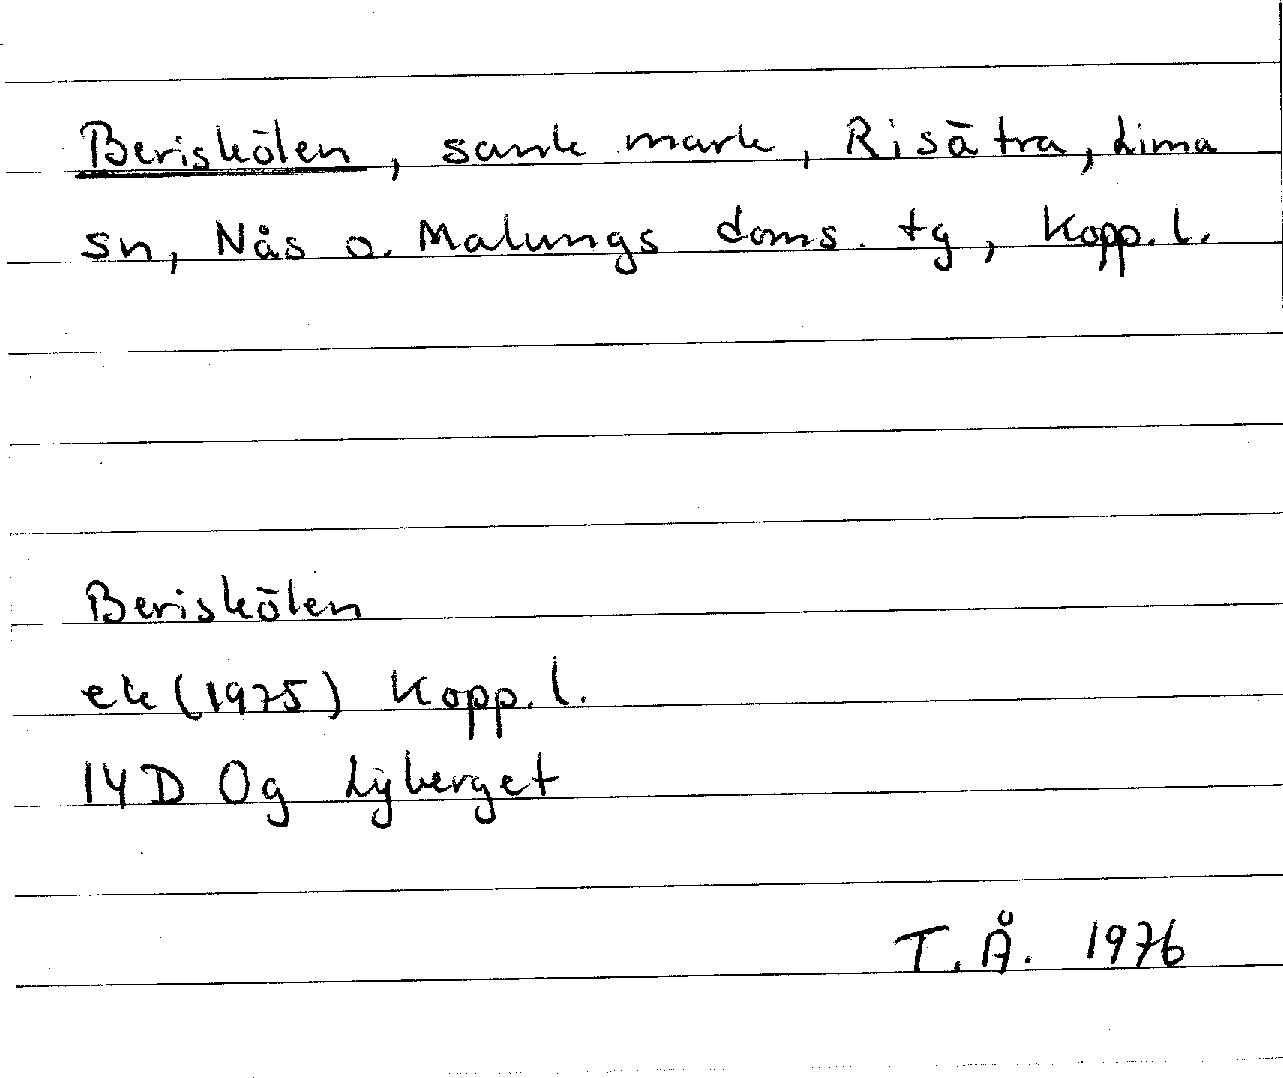 Beriskölen, sank mark, Risätra, Lima
sn, Nås o. Malungs doms. tg, Kopp. l.
Beriskölen
ek (1975) Kopp. l.
14D 0g Lyberget
T.Å. 1976